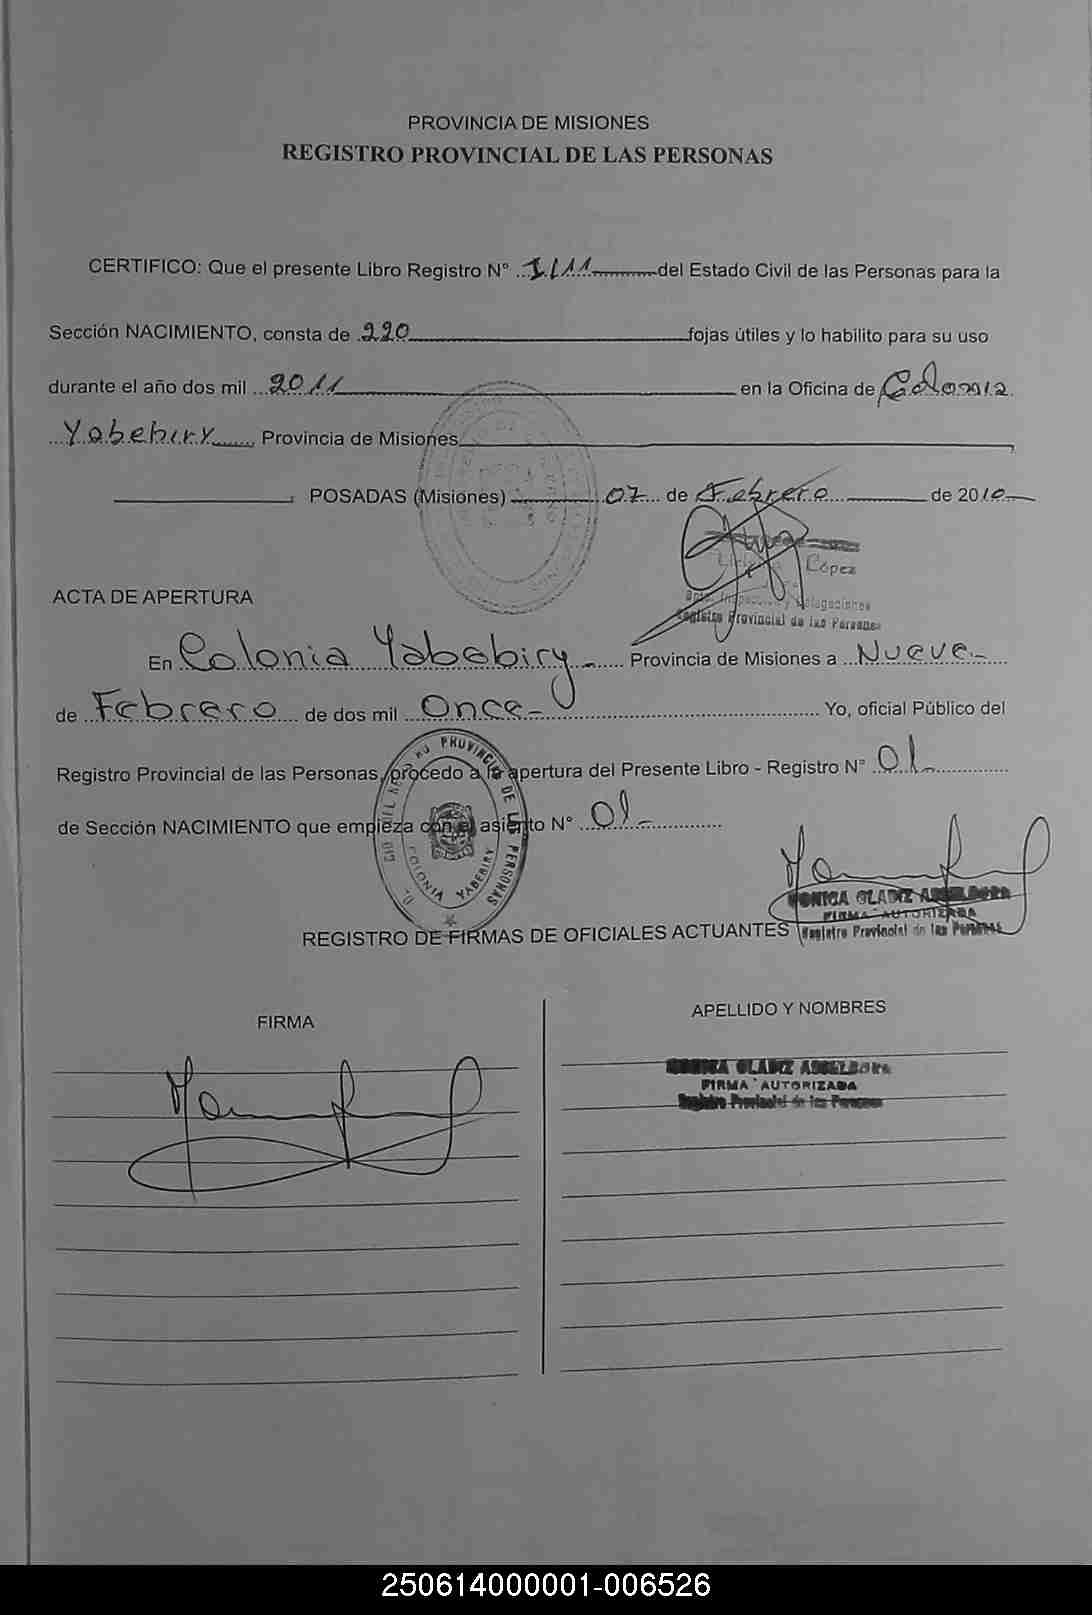 PROVINCIA DE MISIONES
REGISTRO PROVINCIAL DE LAS PERSONAS
CERTIFICO: Que el presente Libro Registro N° I/11 del Estado Civil de las Personas para la
Sección NACIMIENTO, consta de 220 fojas útiles y lo habilito para su uso
durante el año dos mil 2011 en la Oficina de Colonia
Yabebiry, Provincia de Misiones
POSADAS (Misiones) 07 de Febrero de 2010
López
Inspección y Delegaciones
Registro Provincial de las Personas
ACTA DE APERTURA
En Colonia Yabebiry Provincia de Misiones a Nueve
de Febrero de dos mil Once Yo, oficial Público del
Registro Provincial de las Personas, procedo a la apertura del Presente Libro - Registro N° 01
de Sección NACIMIENTO que empieza con el asiento N° 01
PROVINCIAL DE LAS PERSONAS
COLONIA YABEBIRY
MONICA GLADIZ
FIRMA AUTORIZADA
Registro Provincial de las Personas
REGISTRO DE FIRMAS DE OFICIALES ACTUANTES
FIRMA
APELLIDO Y NOMBRES
MONICA GLADIZ
FIRMA AUTORIZADA
Registro Provincial de las Personas
250614000001-006526